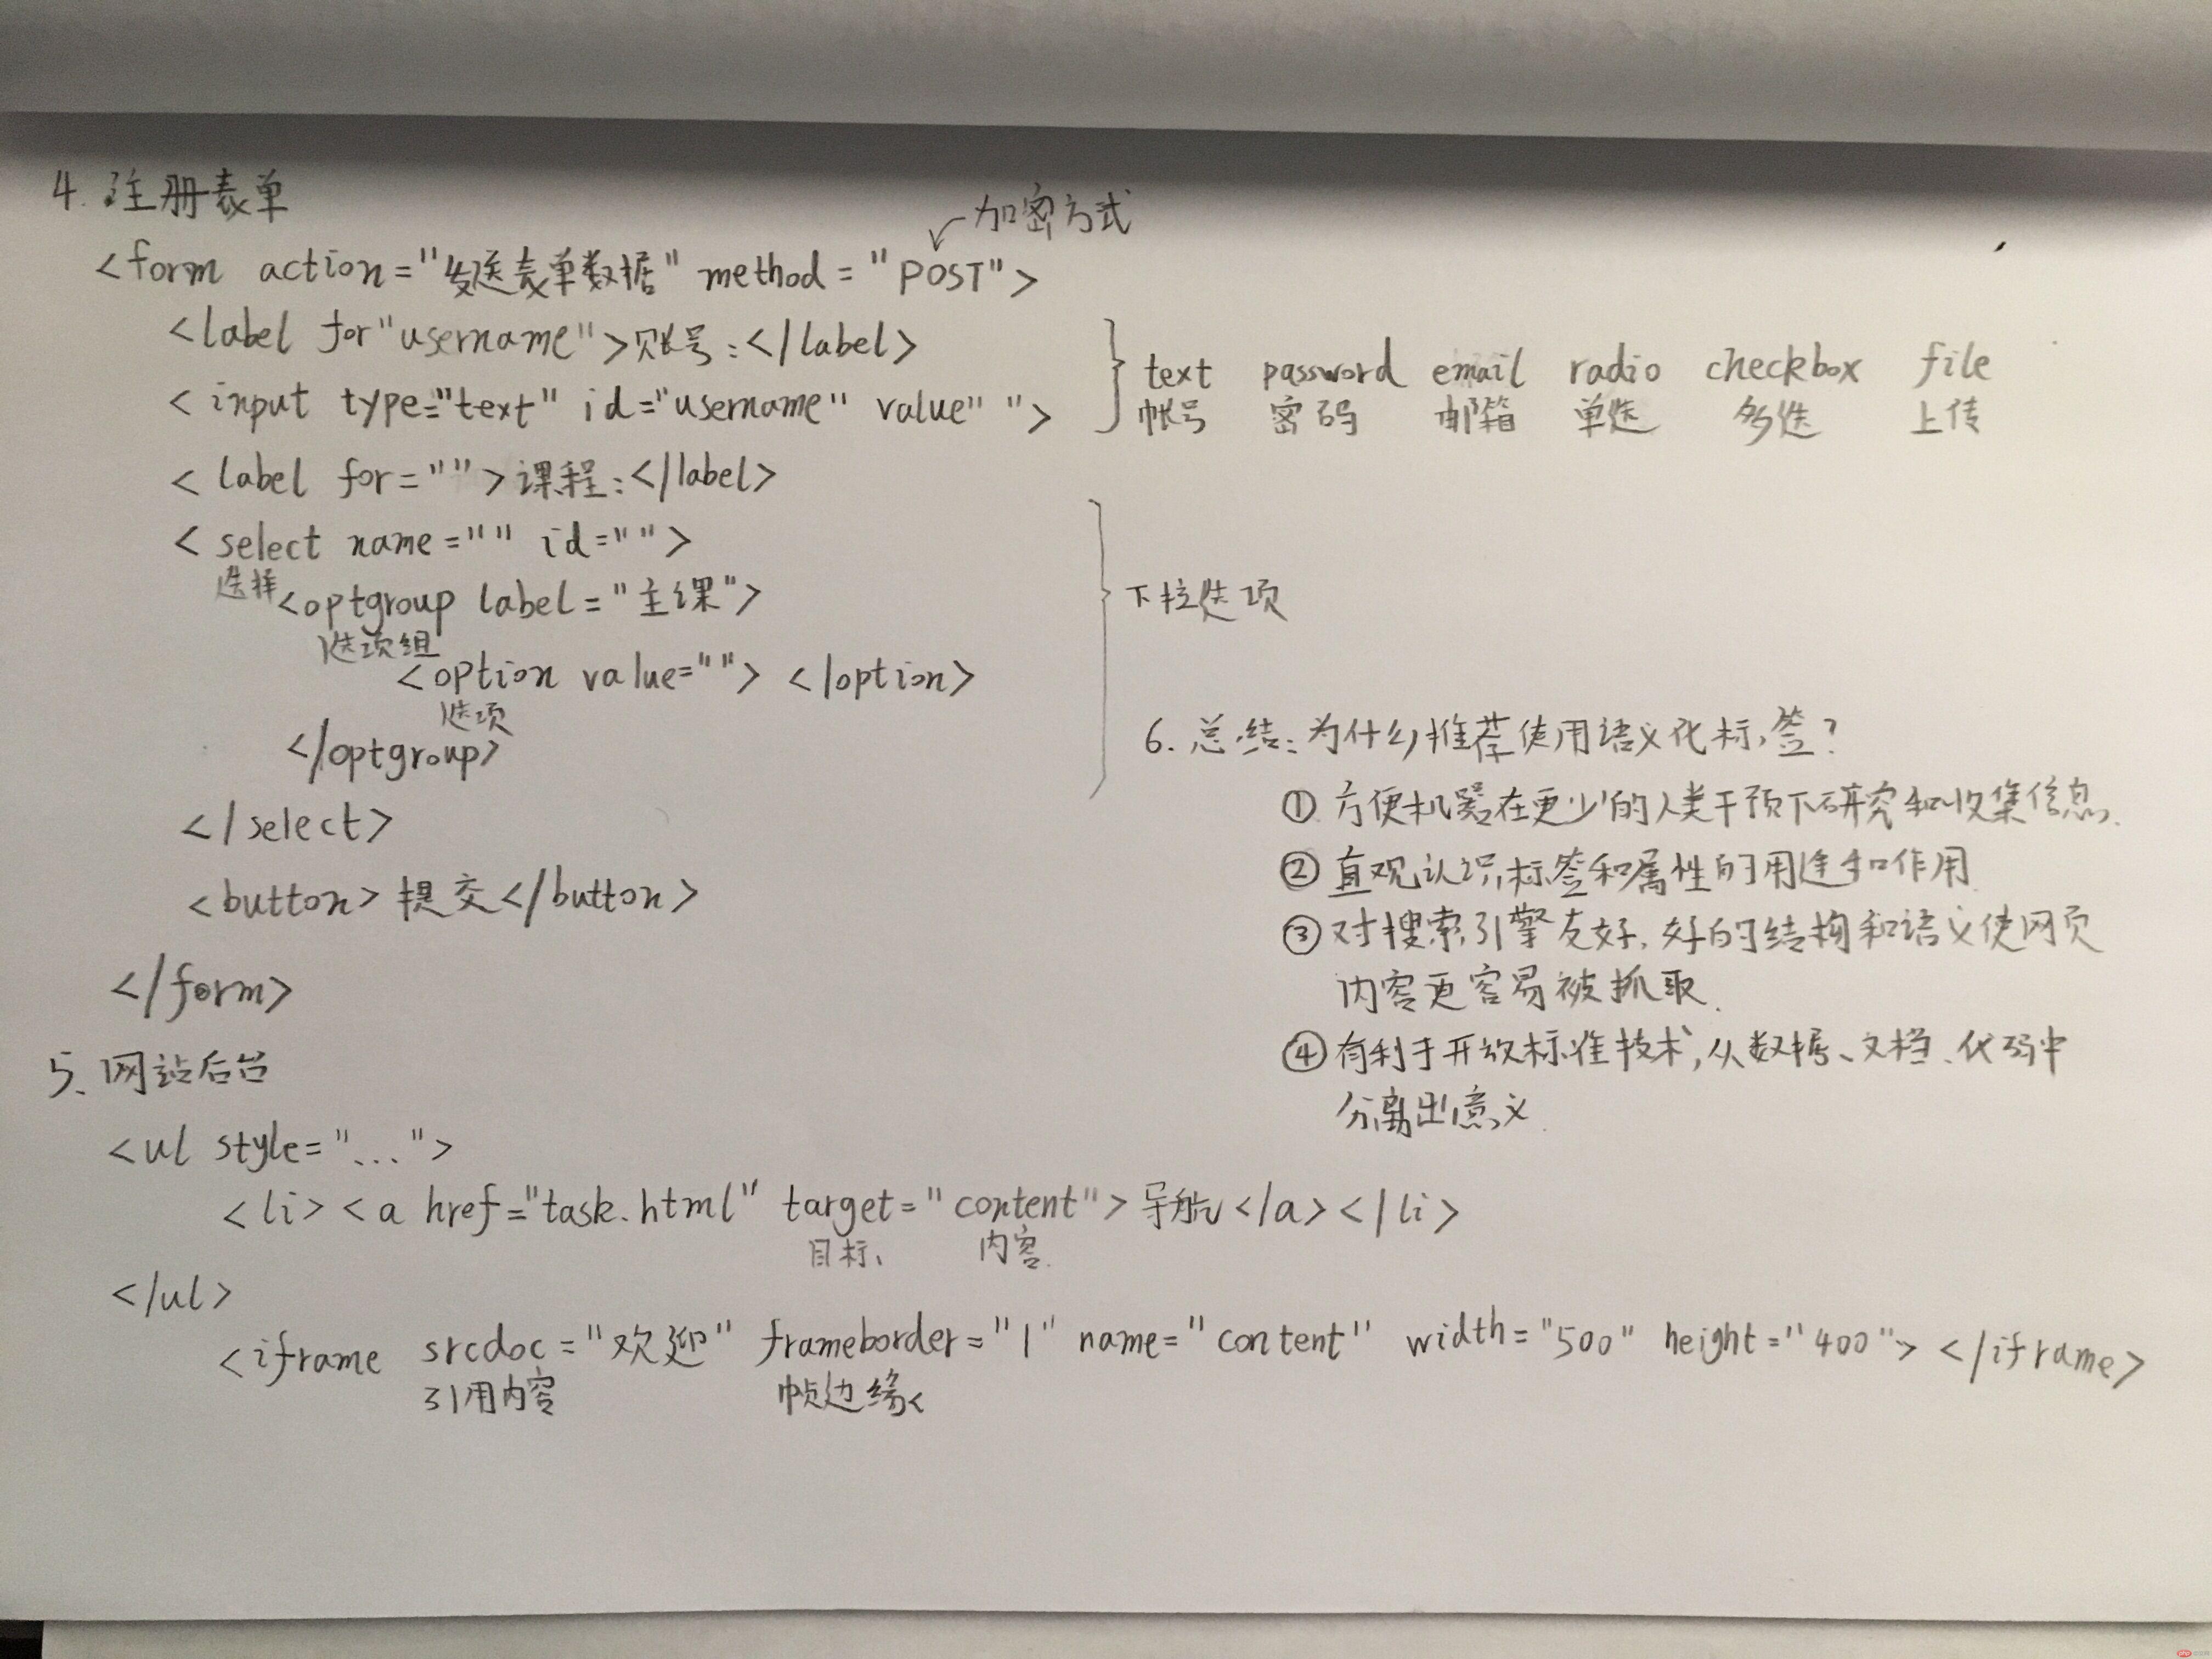 4. 注册表单
加密方式
<form action="发送表单数据" method="POST">
<label for"username">账号:</label>
<input type="text" id="username" value" ">
text password email radio checkbox file
帐号 密码 邮箱 单选 多选 上传
<label for="">课程:</label>
<select name="" id="">
选择
<optgroup label="主课">
选项组
<option value=""> </option>
选项
</optgroup>
</select>
下拉选项
<button>提交</button>
</form>
5. 网站后台
<ul style="...">
<li><a href="task.html" target="content">导航</a></li>
目标、 内容.
</ul>
<iframe srcdoc="欢迎" frameborder="1" name="content" width="500" height="400"></iframe>
引用内容 帧边缘
6. 总结:为什么推荐使用语义化标签?
① 方便机器在更少的人类干预下研究和收集信息.
② 直观认识标签和属性的用途和作用.
③ 对搜索引擎友好,好的结构和语义使网页
内容更容易被抓取.
④ 有利于开放标准技术,从数据、文档、代码中
分离出意义.
php